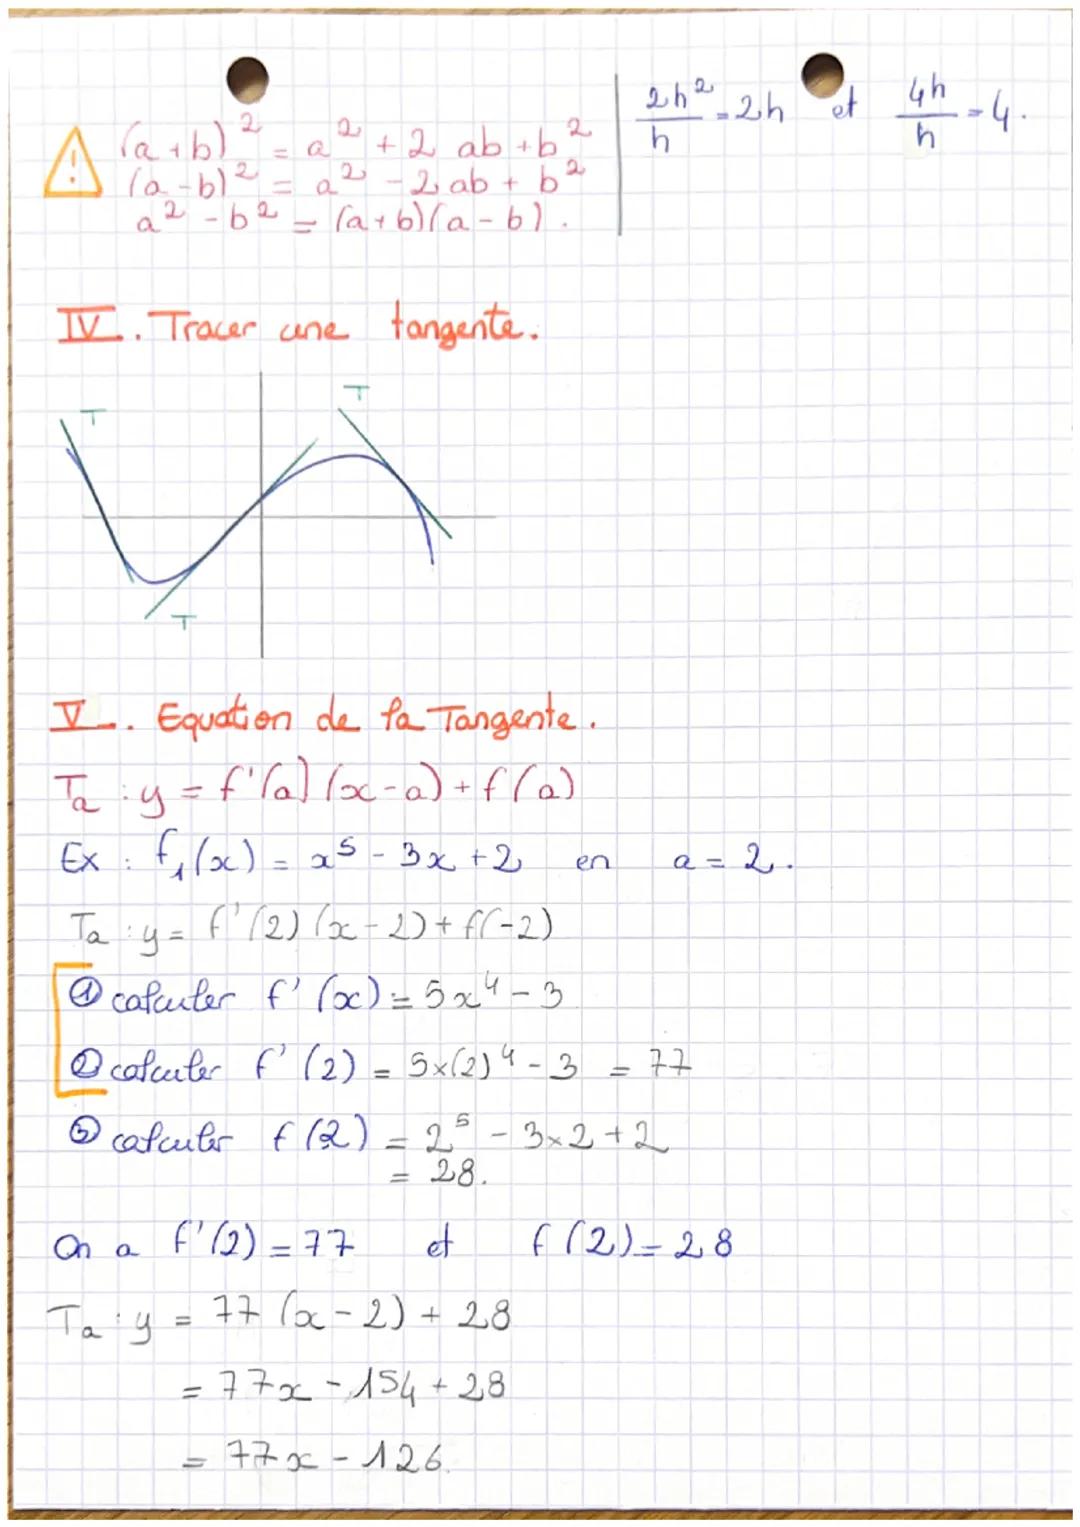 (a+b)² = a² + 2 ab + b²
(a-b)² = a² - 2 ab + b²
a² - b² = (a+b)(a-b).
2h²/h = 2h et 4h/h = 4.
IV. Tracer une tangente.
T
T
T
V. Equation de la Tangente.
Ta : y = f'(a)(x-a) + f(a)
Ex : f₁(x) = x⁵ - 3x + 2 en a = 2.
Ta : y = f'(2)(x-2) + f(-2)
① calculer f'(x) = 5x⁴ - 3
② calculer f'(2) = 5×(2)⁴ - 3 = 77
③ calculer f(2) = 2⁵ - 3×2 + 2
= 28.
On a f'(2) = 77 et f(2) = 28
Ta : y = 77(x-2) + 28
= 77x - 154 + 28
= 77x - 126.